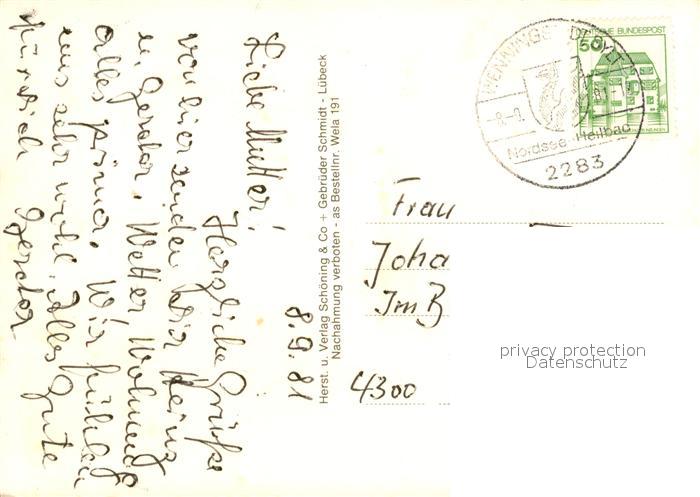 8.9.81
Liebe Mutter!
Herzliche Grüße
von hier senden Dir Heinz
u. Gerda. Wetter, Wohnung
alles prima. Wir fühlen
uns sehr wohl. Alles Gute
für dich Gerda
Herst. u. Verlag Schöning & Co + Gebrüder Schmidt - Lübeck
Nachahmung verboten - as Bestellnr. Wela 191
WENNINGSTEDT
8.-9.
Nordsee-Heilbad
2283
DEUTSCHE BUNDESPOST
50
Frau
Joha
Im B
4300
privacy protection
Datenschutz